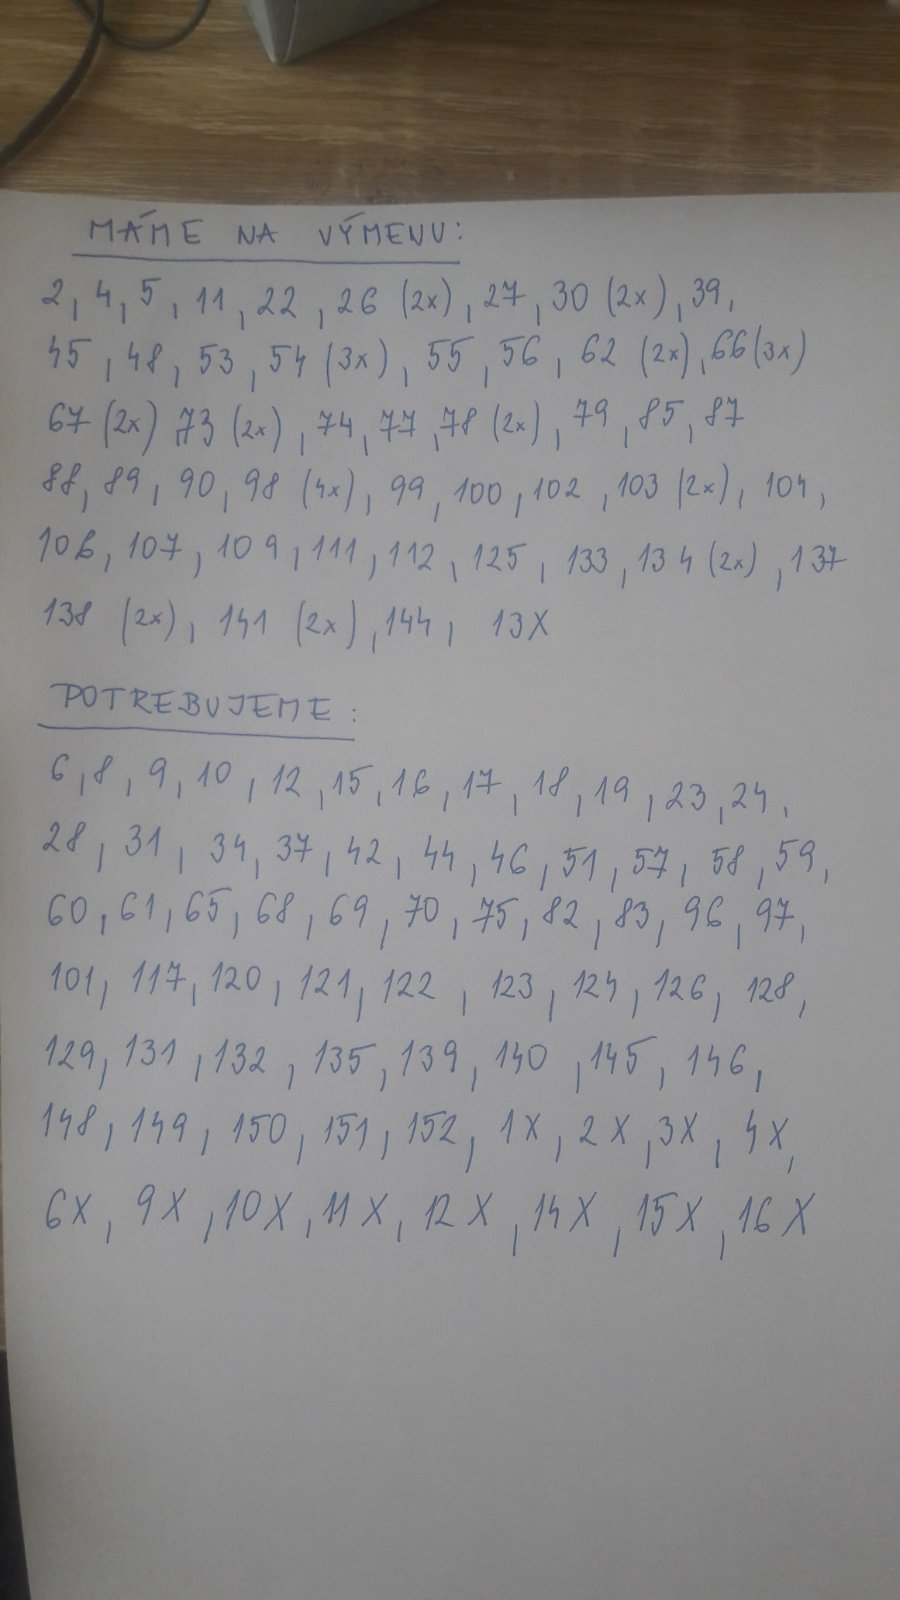 MÁME NA VÝMENU:
2, 4, 5, 11, 22, 26 (2x), 27, 30 (2x), 39,
45, 48, 53, 54 (3x), 55, 56, 62 (2x), 66 (3x)
67 (2x) 73 (2x), 74, 77, 78 (2x), 79, 85, 87
88, 89, 90, 98 (4x), 99, 100, 102, 103 (2x), 104,
106, 107, 109, 111, 112, 125, 133, 134 (2x), 137
138 (2x), 141 (2x), 144, 13X
POTREBUJEME:
6, 8, 9, 10, 12, 15, 16, 17, 18, 19, 23, 24,
28, 31, 34, 37, 42, 44, 46, 51, 57, 58, 59,
60, 61, 65, 68, 69, 70, 75, 82, 83, 96, 97,
101, 117, 120, 121, 122, 123, 124, 126, 128,
129, 131, 132, 135, 139, 140, 145, 146,
148, 149, 150, 151, 152, 1X, 2X, 3X, 4X,
6X, 9X, 10X, 11X, 12X, 14X, 15X, 16X